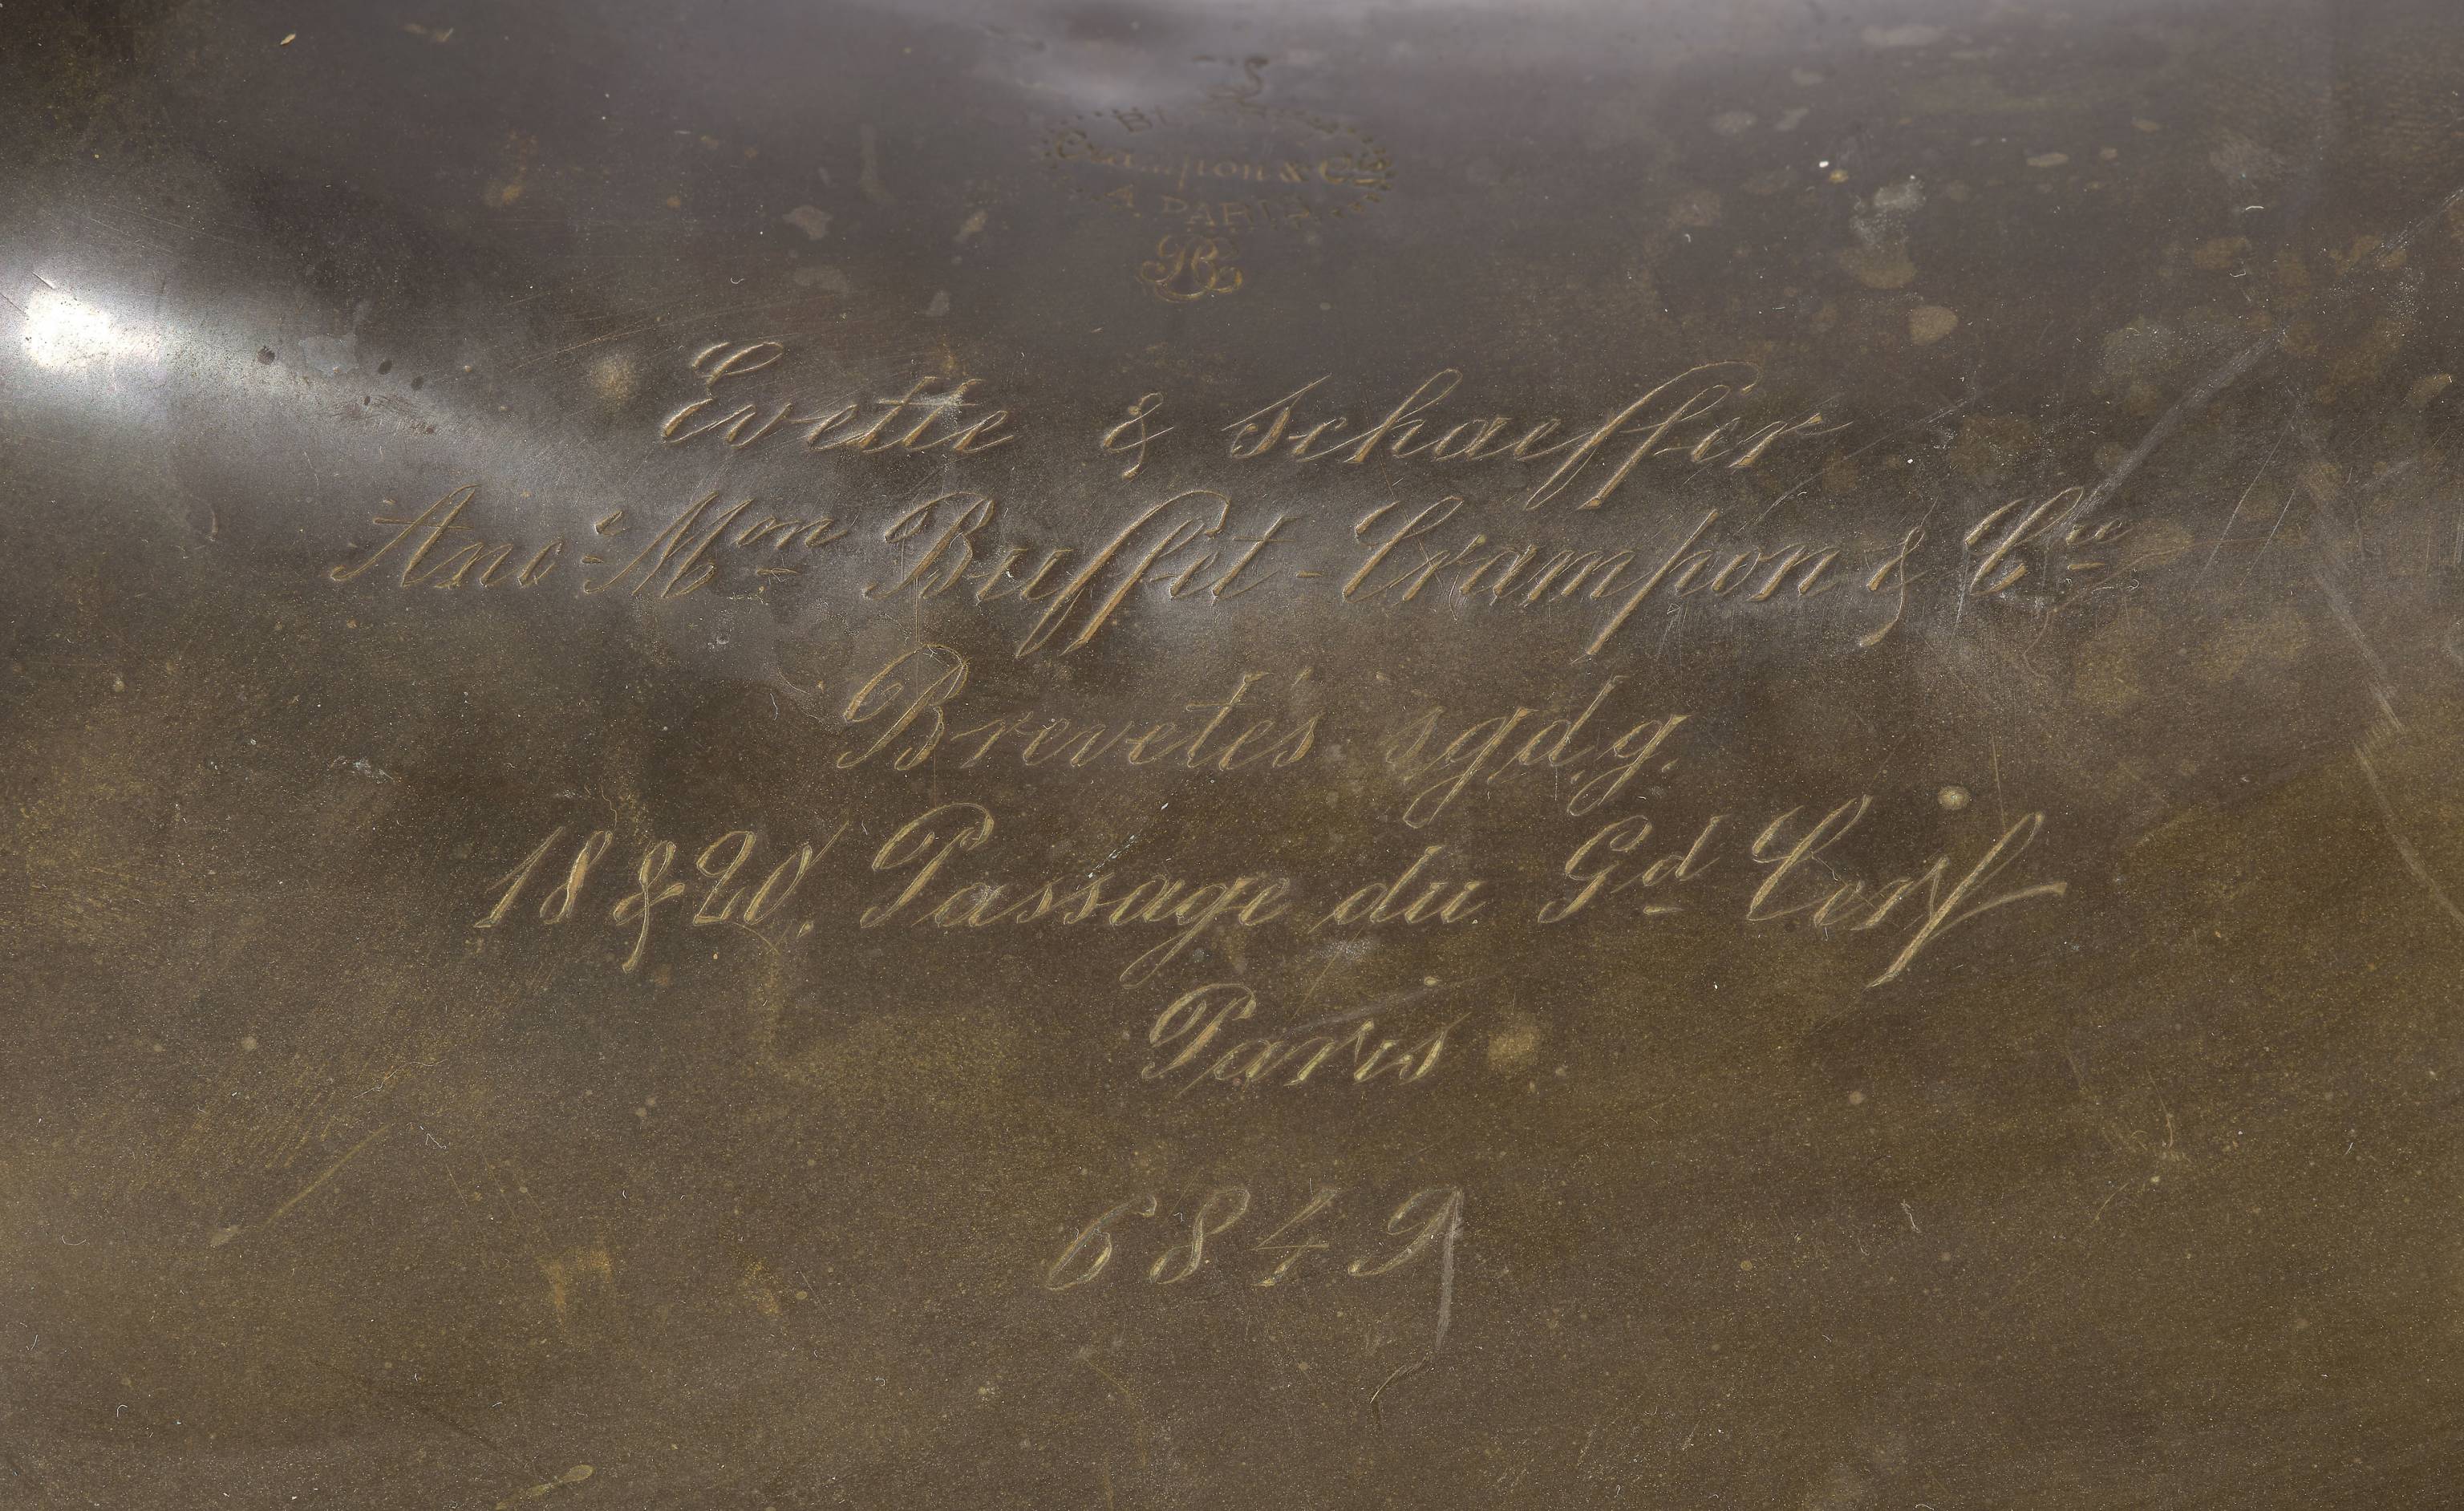 Crampon & Cie
A PARIS
BC
Evette & Schaeffer
Ancne Mon Buffet-Crampon & Cie
Brevetés sgd.g.
18 & 20, Passage du Gd Cerf
Paris
6849